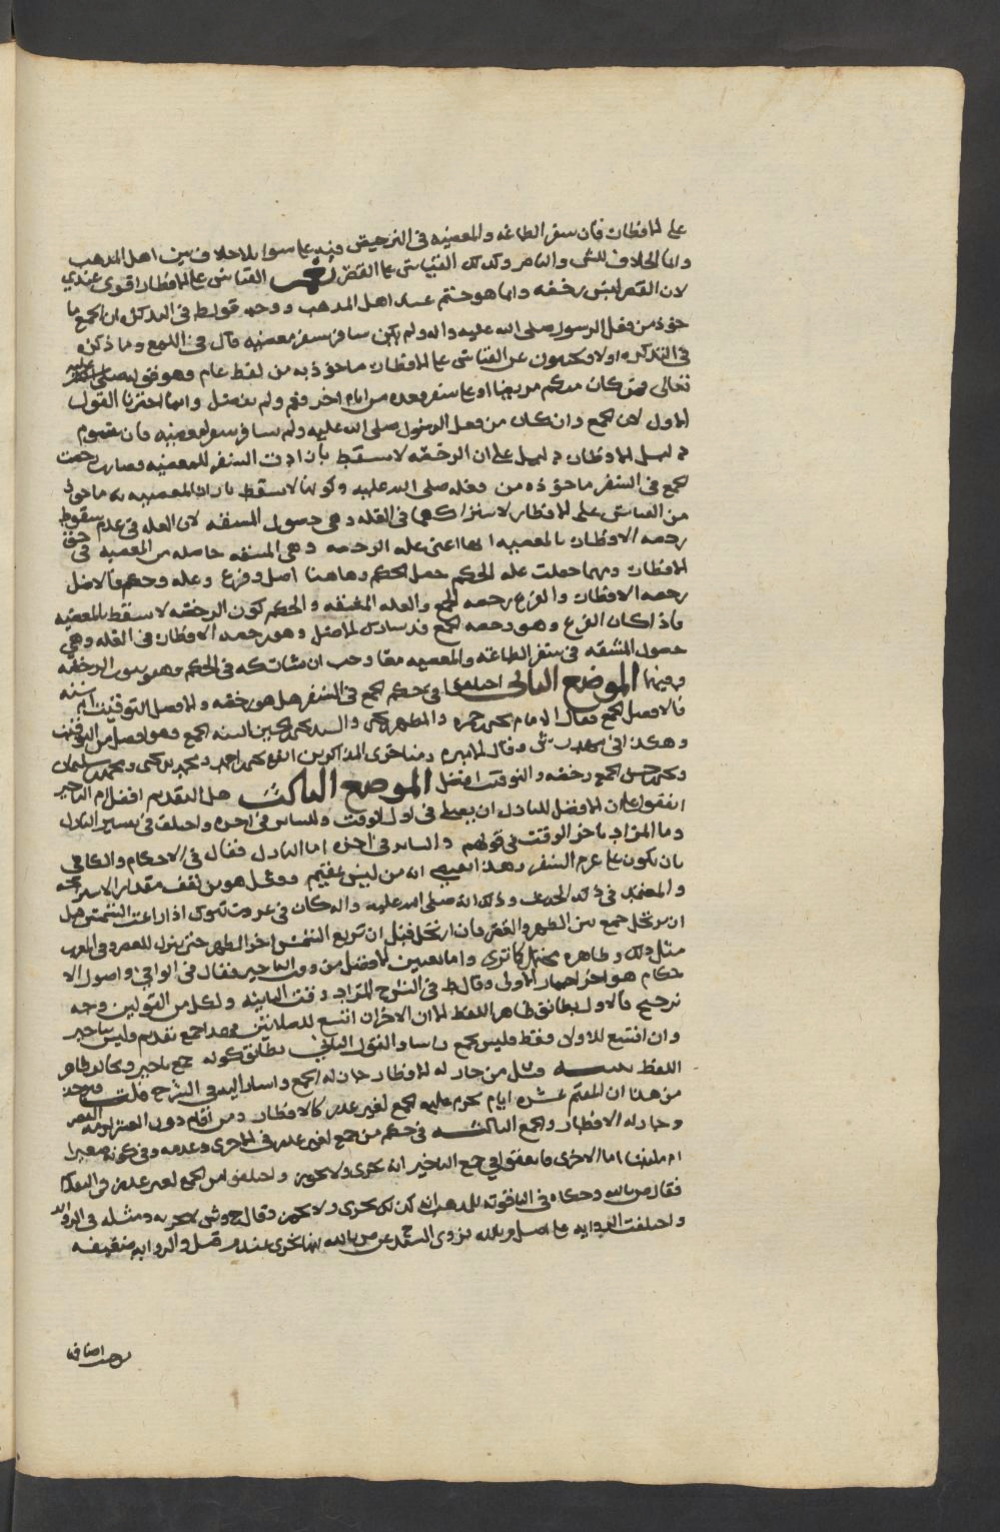 على الافطار فان سفر الطاعه والمعصيه في الترخيص فيه على سوا بلا خلاف بين اهل المذهب
وانما الخلاف للش والناصر وكذلك القياس على القصر القياس على الافطار اقوى عندي
لان القصر ليس رخصه وانما هو حتم عند اهل المذهب ووجه قول ط في التذكره ان الجمع ما
خوذ من فعل الرسول صلى الله عليه واله ولم يكن سافر سفر معصيه قال في اللمع وما ذكره
في التذكره اولا وكيون عن القياس على الافطار ماخوذ به من لفظ عام وهو قوله
تعالى فمن كان منكم مريضا او على سفر فعده من ايام اخر فعم ولم يفصل وانما اخترنا القول
الاول لان الجمع وان كان من فعل الرسول صلى الله عليه ولم يسافر سفر معصيه فان عموم
دليل الافطار دليل على ان الرخصه لا تسقط بان كان السفر للمعصيه وصارت رخصت
الجمع في السفر ماخوذه من فعله صلى الله عليه وكونها لا تسقط بان كان المعصيه به ماخوذ
من القياس على الافطار لاشتراكهما في العله وهي حصول المشقه لان العله في عدم سقوط
رخصه الافطار بالمعصيه انها اعني عله الرخصه وهي المشقه حاصله مع المعصيه في حق
الافطار ومهما حصلت عله الحكم حصل الحكم وهاهنا اصل وفرع وعله وحكم فالاصل
رخصه الافطار والفرع رخصه الجمع والعله المشقه والحكم كون الرخصه لا تسقط بالمعصيه
فاذا كان الفرع وهو رخصه الجمع قد شارك الاصل وهو رخصه الافطار في العله وهي
حصول المشقه في سفر الطاعه والمعصيه معا وجب ان يشاركه في الحكم وهو ثبوت الرخصه
فيهما الموضع الثاني اختلفوا في حكم الجمع في السفر هل هو رخصه والافضل التوقيت ام سنه
فالافضل الجمع فقال الامام يحيى حمزه والمطهر بن يحيى والسيد يحيى بن الحسين السنه الجمع وهو افضل من التوقيت
وهكذا في مهذب ش وقال الامير ومتاخري المذاكرين الفقيه يحيى بن احمد ومحمد بن يحيى ومحمد بن سليمان
ويحيى حسن الجمع رخصه والتوقيت افضل الموضع الثالث هل التقديم افضل ام التاخير
اتفقوا على ان الافضل للنازل ان يصلي في اول الوقت وللسائر في اخره واختلف في تفسير النازل
وما المراد باخر الوقت في قولهم والسائر في اخره اما النازل فقال في الاحكام والكافي
بان يكون على عزم السفر وهذا انه من ليس بمقيم وقيل هو من يقف مقدار الاستراحه
والمعتمد في ذلك الحديث وذلك انه صلى الله عليه واله كان في غزوت تبوك اذا زاغت الشمس قبل
ان يرتحل جمع بين الظهر والعصر فان ارتحل قبل ان تزيغ الشمس اخر الظهر حتى ينزل للعصر وفي المغرب
مثل ذلك وظاهره يحتمل كما ترى واما تعيين الافضل من وقت التاخير فقال في الوافي واصول الا
حكام هو اخر اختيار الاولى وقال ط في الشرح المراد وقت الثانيه ولكل من القولين وجه
ترجيح فالاول يطابق ظاهر اللفظ الا ان الاخر ان اتسع للصلاتين فهذا جمع تقديم وليس بتاخير
وان اتسع للاولى فقط فليس بجمع راسا والقول الثاني يطابق كونه جمع تاخير ويخالف ظاهر
اللفظ وكل من جاز له الافطار جاز له الجمع واشار اليه في الشرح قلت
من هذا ان المقيم عشره ايام يحرم عليه الجمع لغير عذر كالافطار ومن اقام دون العشر لزمه القصر
وجاز له الافطار والجمع الثالثه في حكم من جمع لغير عذر في الاجزى وعدمه وفي كونه
ام لا اما الاجزى فاتفقوا في جمع التاخير انه يجزي ولا يجوز واختلفوا في الجمع لغير عذر في التقديم
فقال ص بالله وحكاه في الياقوته للمذهب انه يجزي ولا يجوز وقال ح وش لا يجزيه ومثله في الزوائد
واختلفت الروايه على اصل م بالله فروى السيد ح عن ص بالله انها تجزي عنده وقيل والروايه ضعيفه
اضافها